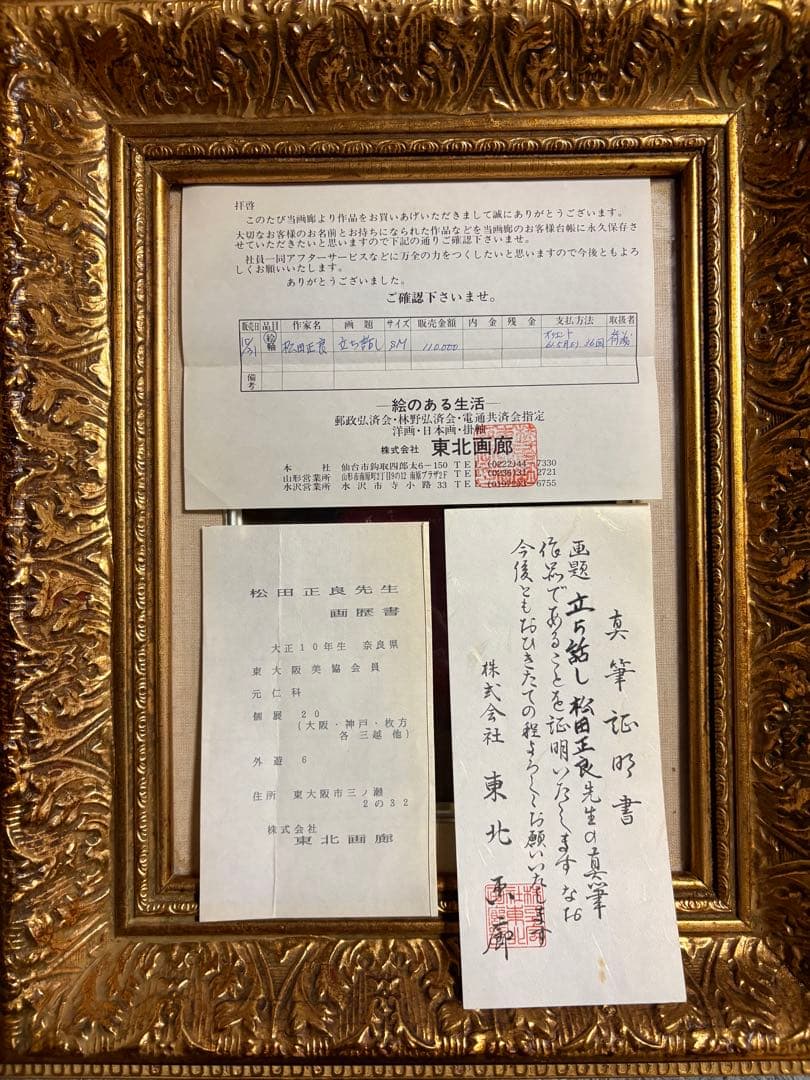 拝啓
このたび当画廊より作品をお買いあげいただきまして誠にありがとうございます。
大切なお客様のお名前とお持ちになられた作品などを当画廊のお客様台帳に永久保存さ
せていただきたいと思いますので下記の通りご確認下さいませ。
社員一同アフターサービスなどに万全の力をつくしたいと思いますので今後ともよろ
しくお願いいたします。
ありがとうございました。
ご確認下さいませ。
販売日 品目 作家名 画題 サイズ 販売金額 内金 残金 支払方法 取扱者
12/31 絵 軸 松田正良 立ち話し SM 110,000
備考
―絵のある生活―
郵政弘済会・林野弘済会・電通共済会指定
洋画・日本画・掛軸
株式会社 東北画廊
本社 仙台市鈎取四郎太6-150 TEL (0222)44-7330
山形営業所 山形市南原町2丁目9の12 南原プラザ2F TEL (0236)31-2721
水沢営業所 水沢市寺小路33 TEL 6755
松田正良先生
画歴書
大正10年生 奈良県
東大阪美協会員
元仁科
個展 20
(大阪・神戸・枚方
各三越他)
外遊 6
住所 東大阪市三ノ瀬
2の32
株式会社
東北画廊
真筆証明書
画題 立ち話し 松田正良先生の真筆
作品であることを証明いたします なお
今後ともおひきたての程よろしくお願いいたします
株式会社 東北画廊